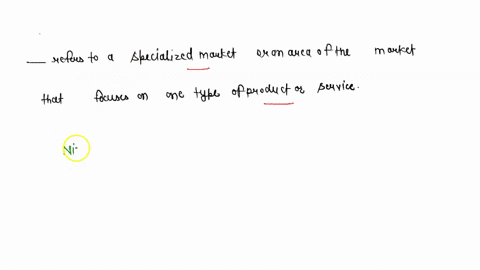 ___ refers to a specialized market or an area of the market
that focuses on one type of product or service.
Ni